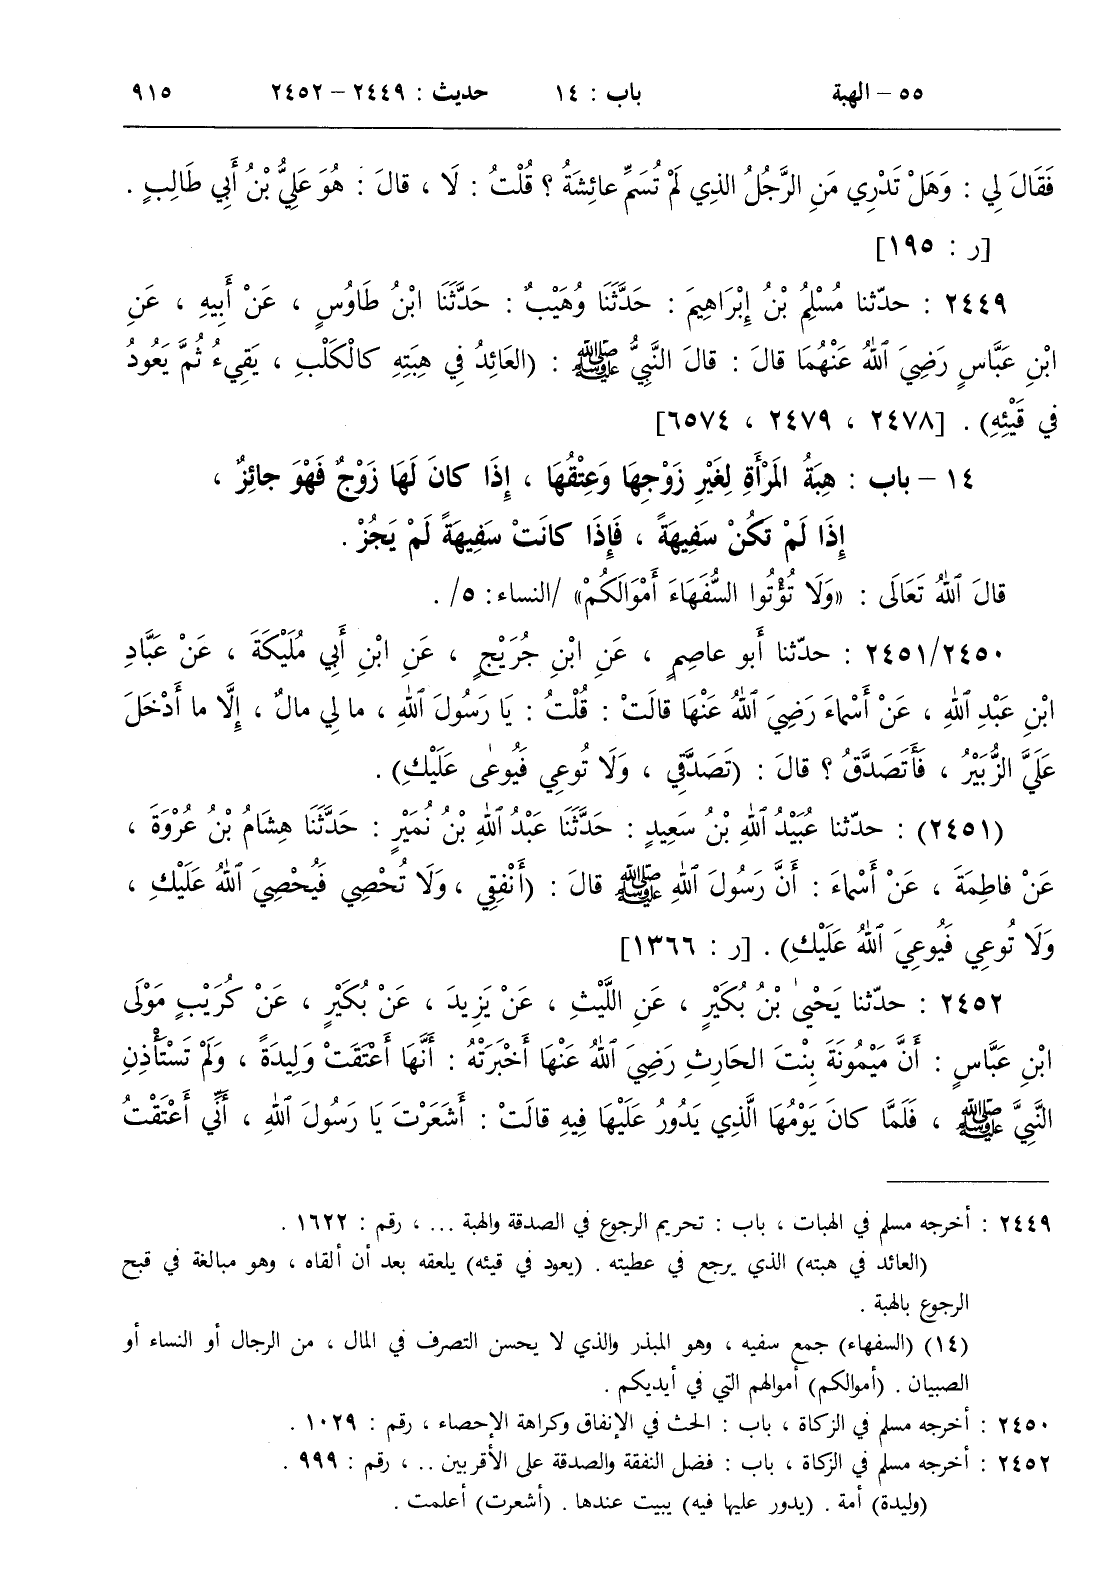 ٥٥ – الهبة باب : ١٤ حديث : ٢٤٤٩ – ٢٤٥٢ ٩١٥
فَقَالَ لِي : وَهَلْ تَدْرِي مَنِ الرَّجُلُ الذِي لَمْ تُسَمِّ عائِشَةُ ؟ قُلْتُ : لَا ، قالَ : هُوَ عَلِيُّ بْنُ أَبِي طَالِبٍ .
[ر : ١٩٥]
٢٤٤٩ : حدّثنا مُسْلِمُ بْنُ إِبْرَاهِيمَ : حَدَّثَنَا وُهَيْبٌ : حَدَّثَنَا ابْنُ طَاوُسٍ ، عَنْ أَبِيهِ ، عَنِ
ابْنِ عَبَّاسٍ رَضِيَ ٱللهُ عَنْهُمَا قالَ : قالَ النَّبِيُّ ﷺ : (العَائِدُ فِي هِبَتِهِ كالْكَلْبِ ، يَقِيءُ ثُمَّ يَعُودُ
فِي قَيْئِهِ) . [٢٤٧٨ ، ٢٤٧٩ ، ٦٥٧٤]
١٤ – باب : هِبَةُ المَرْأَةِ لِغَيْرِ زَوْجِهَا وَعِتْقُهَا ، إِذَا كانَ لَهَا زَوْجٌ فَهْوَ جائِزٌ ،
إِذَا لَمْ تَكُنْ سَفِيهَةً ، فَإِذَا كانَتْ سَفِيهَةً لَمْ يَجُزْ .
قالَ ٱللهُ تَعَالَى : «وَلَا تُؤْتُوا السُّفَهَاءَ أَمْوَالَكُمْ» /النساء: ٥/ .
٢٤٥١/٢٤٥٠ : حدّثنا أَبو عاصِمٍ ، عَنِ ابْنِ جُرَيْجٍ ، عَنِ ابْنِ أَبِي مُلَيْكَةَ ، عَنْ عَبَّادِ
ابْنِ عَبْدِ ٱللهِ ، عَنْ أَسْمَاءَ رَضِيَ ٱللهُ عَنْهَا قالَتْ : قُلْتُ : يَا رَسُولَ ٱللهِ ، ما لِي مالٌ ، إِلَّا ما أَدْخَلَ
عَلَيَّ الزُّبَيْرُ ، فَأَتَصَدَّقُ ؟ قالَ : (تَصَدَّقِي ، وَلَا تُوعِي فَيُوعٰى عَلَيْكِ) .
(٢٤٥١) : حدّثنا عُبَيْدُ ٱللهِ بْنُ سَعِيدٍ : حَدَّثَنَا عَبْدُ ٱللهِ بْنُ نُمَيْرٍ : حَدَّثَنَا هِشَامُ بْنُ عُرْوَةَ ،
عَنْ فاطِمَةَ ، عَنْ أَسْمَاءَ : أَنَّ رَسُولَ ٱللهِ ﷺ قالَ : (أَنْفِقِي ، وَلَا تُحْصِي فَيُحْصِيَ ٱللهُ عَلَيْكِ ،
وَلَا تُوعِي فَيُوعِيَ ٱللهُ عَلَيْكِ) . [ر : ١٣٦٦]
٢٤٥٢ : حدّثنا يَحْيىٰ بْنُ بُكَيْرٍ ، عَنِ اللَّيْثِ ، عَنْ يَزِيدَ ، عَنْ بُكَيْرٍ ، عَنْ كُرَيْبٍ مَوْلَى
ابْنِ عَبَّاسٍ : أَنَّ مَيْمُونَةَ بِنْتَ الحَارِثِ رَضِيَ ٱللهُ عَنْهَا أَخْبَرَتْهُ : أَنَّهَا أَعْتَقَتْ وَلِيدَةً ، وَلَمْ تَسْتَأْذِنِ
النَّبِيَّ ﷺ ، فَلَمَّا كانَ يَوْمُهَا الَّذِي يَدُورُ عَلَيْهَا فِيهِ قالَتْ : أَشَعَرْتَ يَا رَسُولَ ٱللهِ ، أَنِّي أَعْتَقْتُ
٢٤٤٩ : أخرجه مسلم في الهبات ، باب : تحريم الرجوع في الصدقة والهبة ... ، رقم : ١٦٢٢ .
(العائد في هبته) الذي يرجع في عطيته . (يعود في قيئه) يلعقه بعد أن ألقاه ، وهو مبالغة في قبح
الرجوع بالهبة .
(١٤) (السفهاء) جمع سفيه ، وهو المبذر والذي لا يحسن التصرف في المال ، من الرجال أو النساء أو
الصبيان . (أموالكم) أموالهم التي في أيديكم .
٢٤٥٠ : أخرجه مسلم في الزكاة ، باب : الحث في الإنفاق وكراهة الإحصاء ، رقم : ١٠٢٩ .
٢٤٥٢ : أخرجه مسلم في الزكاة ، باب : فضل النفقة والصدقة على الأقربين .. ، رقم : ٩٩٩ .
(وليدة) أمة . (يدور عليها فيه) يبيت عندها . (أشعرت) أعلمت .